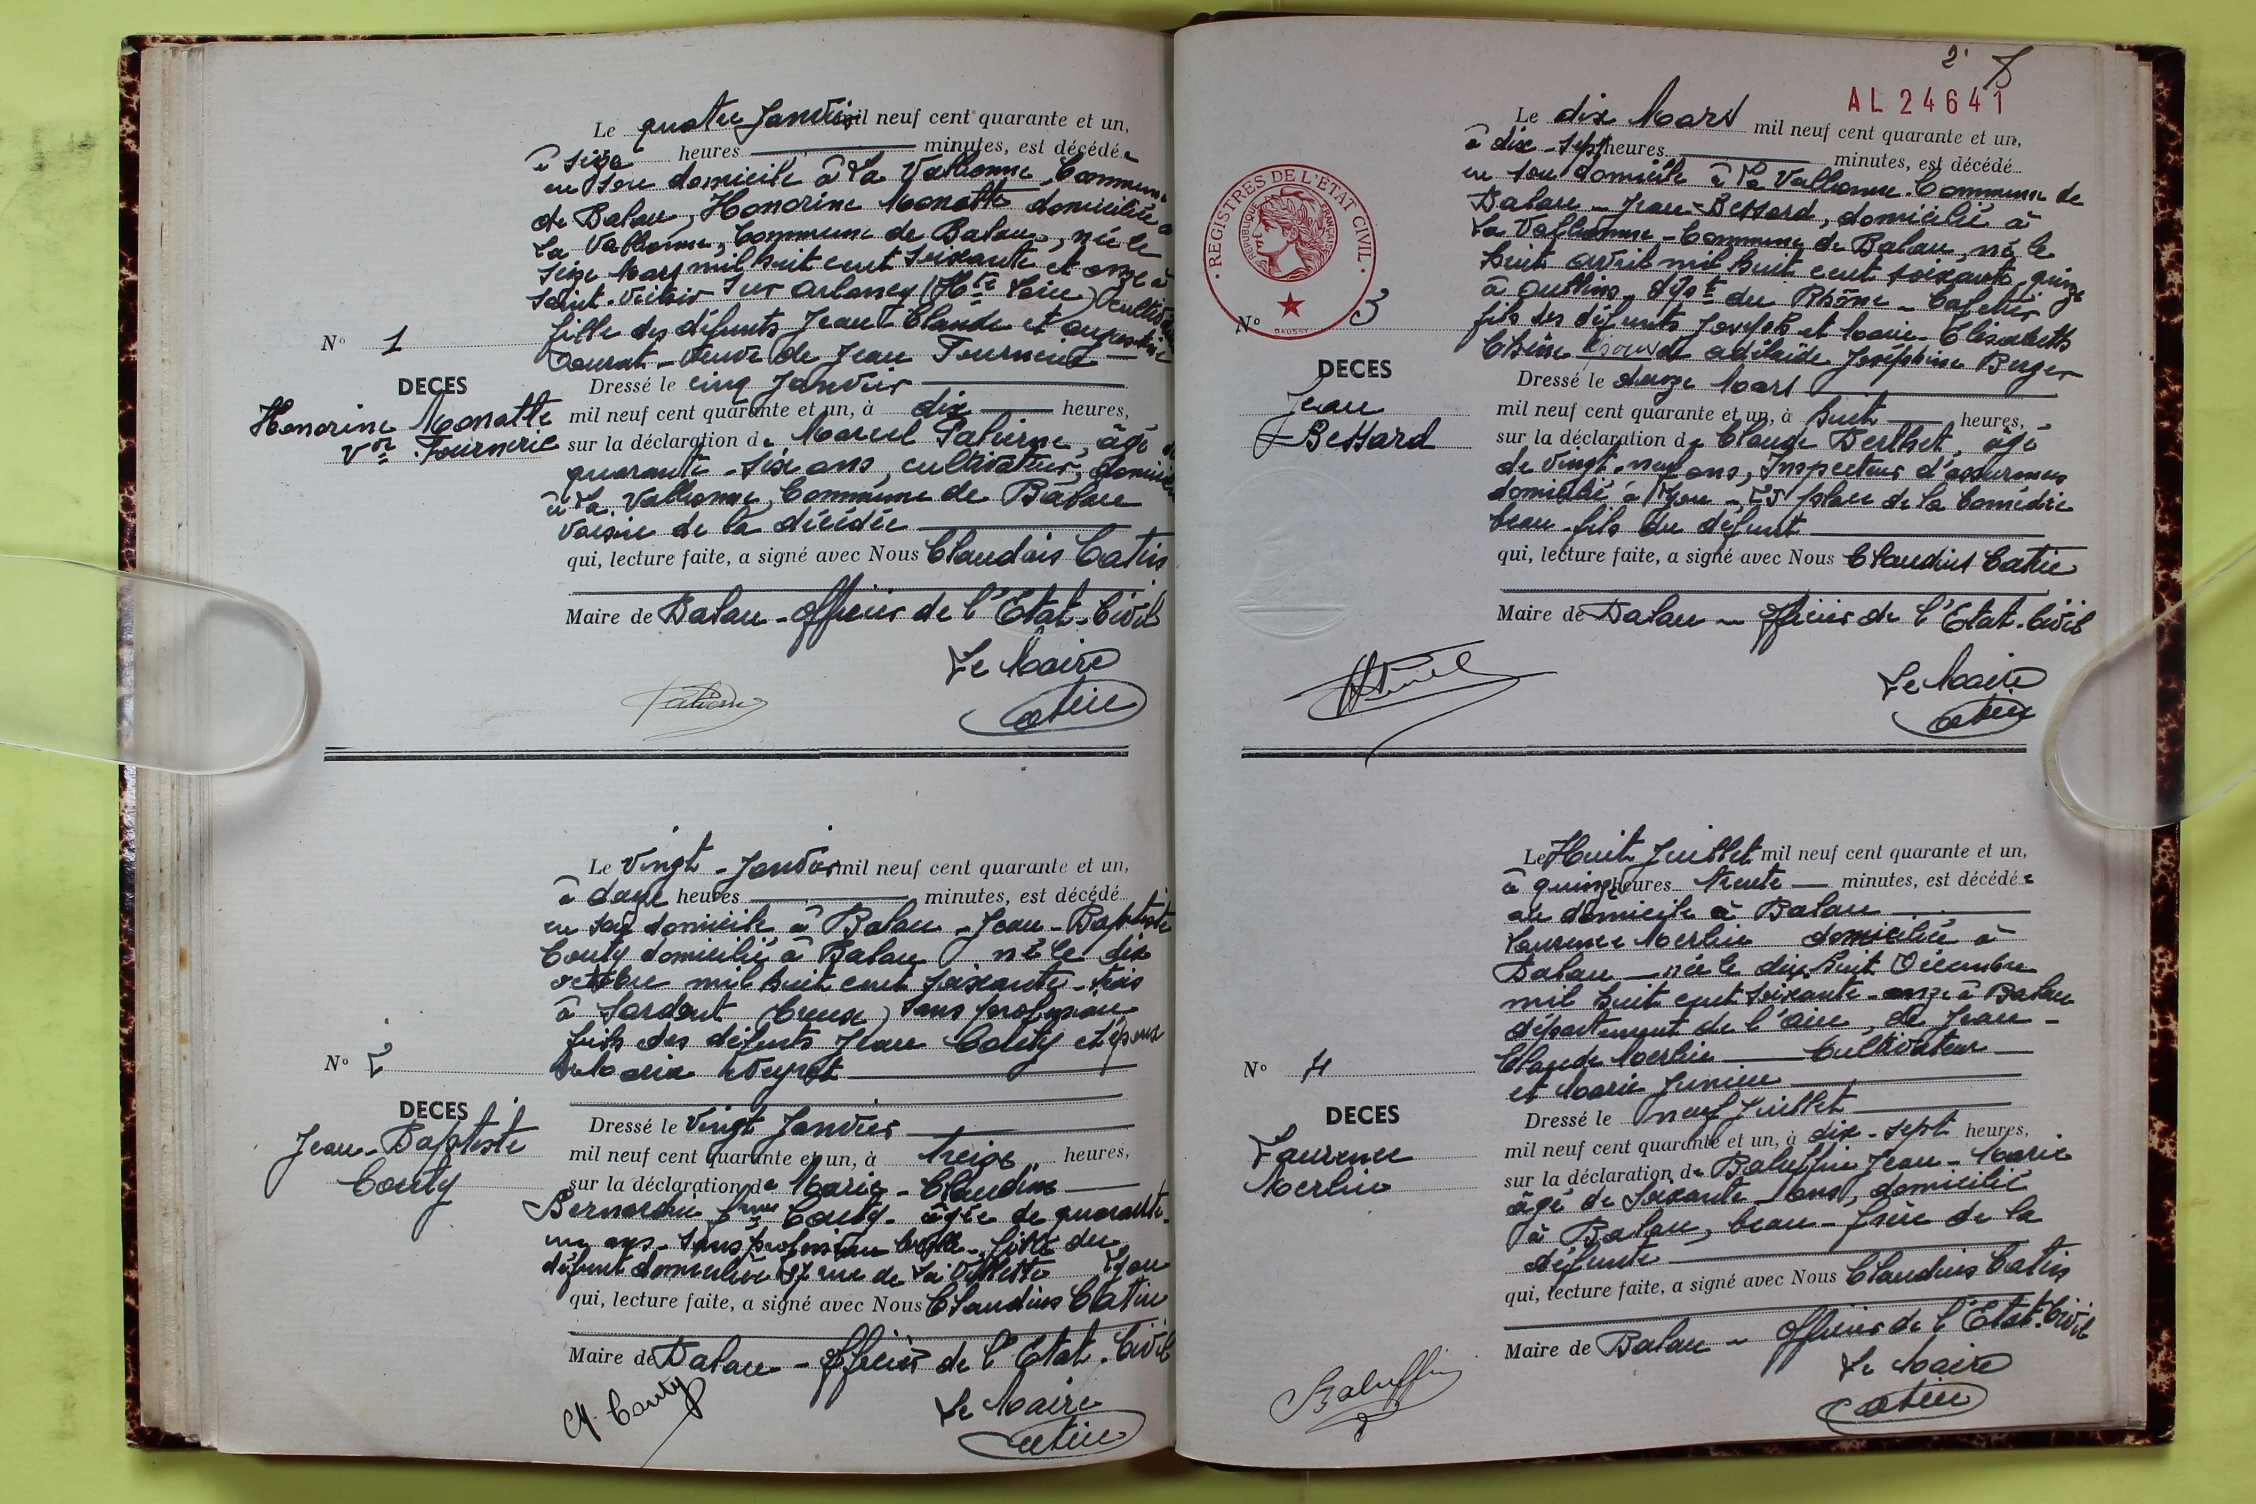 Le quatre Janvier mil neuf cent quarante et un,
à seize heures minutes, est décédée
en son domicile à La Valbonne, Commune
de Balan, Honorine Monatte domiciliée à
La Valbonne, Commune de Balan, née le
seize Mars mil huit cent soixante et onze à
Saint-Victor sur Arlanc (Hte Loire)
fille des défunts Jean Claude et Augustine
Courat - Veuve de Jean Fournerie
N° 1
DECES
Honorine Monatte
Vve Fournerie
Dressé le cinq Janvier
mil neuf cent quarante et un, à dix heures,
sur la déclaration de Marcel Palierne, âgé de
quarante-six ans, cultivateur, domicilié
à La Valbonne, Commune de Balan
voisin de la décédée
qui, lecture faite, a signé avec Nous Claudius Catin
Maire de Balan - Officier de l'Etat-Civil
Le Maire
Catin
Le vingt - Janvier mil neuf cent quarante et un,
à douze heures minutes, est décédé
en son domicile à Balan - Jean-Baptiste
Couty domicilié à Balan né le dix
octobre mil huit cent soixante-trois
à Sardent Creuse) sans profession
fils des défunts Jean Couty et époux
de Marie
N° 2
DECES
Jean-Baptiste
Couty
Dressé le vingt Janvier
mil neuf cent quarante et un, à treize heures,
sur la déclaration de Marie-Claudine
Bernardin fme Couty - âgée de quarante-
un ans - sans profession belle-fille du
défunt domiciliée 57 rue de La Villette Lyon
qui, lecture faite, a signé avec Nous Claudius Catin
Maire de Balan - Officier de l'Etat-Civil
M. Couty
Le Maire
Catin
2
AL 24641
Le dix Mars mil neuf cent quarante et un,
à dix-sept heures minutes, est décédé
en son domicile à La Valbonne Commune de
Balan - Jean-Bessard, domicilié à
La Valbonne - Commune de Balan, né le
huit avril mil huit cent soixante quinze
à Oullins dépt du Rhône - Cafetier
fils des défunts Joseph et Marie-Elisabeth
Chêne époux de Adélaïde Joséphine Berger
REGISTRES DE L'ETAT CIVIL
REPUBLIQUE FRANÇAISE
DAUSSY
N° 3
DECES
Jean
Bessard
Dressé le douze Mars
mil neuf cent quarante et un, à huit heures,
sur la déclaration de Claude Berthet, âgé
de vingt-neuf ans, Inspecteur d'assurances
domicilié à Lyon - 25 place de la Comédie
beau-fils du défunt
qui, lecture faite, a signé avec Nous Claudius Catin
Maire de Balan - Officier de l'Etat-Civil
Le Maire
Catin
Le Huit Juillet mil neuf cent quarante et un,
à quinze heures trente minutes, est décédée
au domicile à Balan
Laurence Merlin domiciliée à
Balan - née le dix huit Décembre
mil huit cent soixante-onze à Balan
département de l'ain, de Jean-
Claude Merlin Cultivateur
et Marie Junin
N° 4
DECES
Laurence
Merlin
Dressé le neuf Juillet
mil neuf cent quarante et un, à dix-sept heures,
sur la déclaration de Baluffin Jean-Marie
âgé de soixante ans, domicilié
à Balan, beau-frère de la
défunte
qui, lecture faite, a signé avec Nous Claudius Catin
Maire de Balan - Officier de l'Etat-Civil
Baluffin
Le Maire
Catin